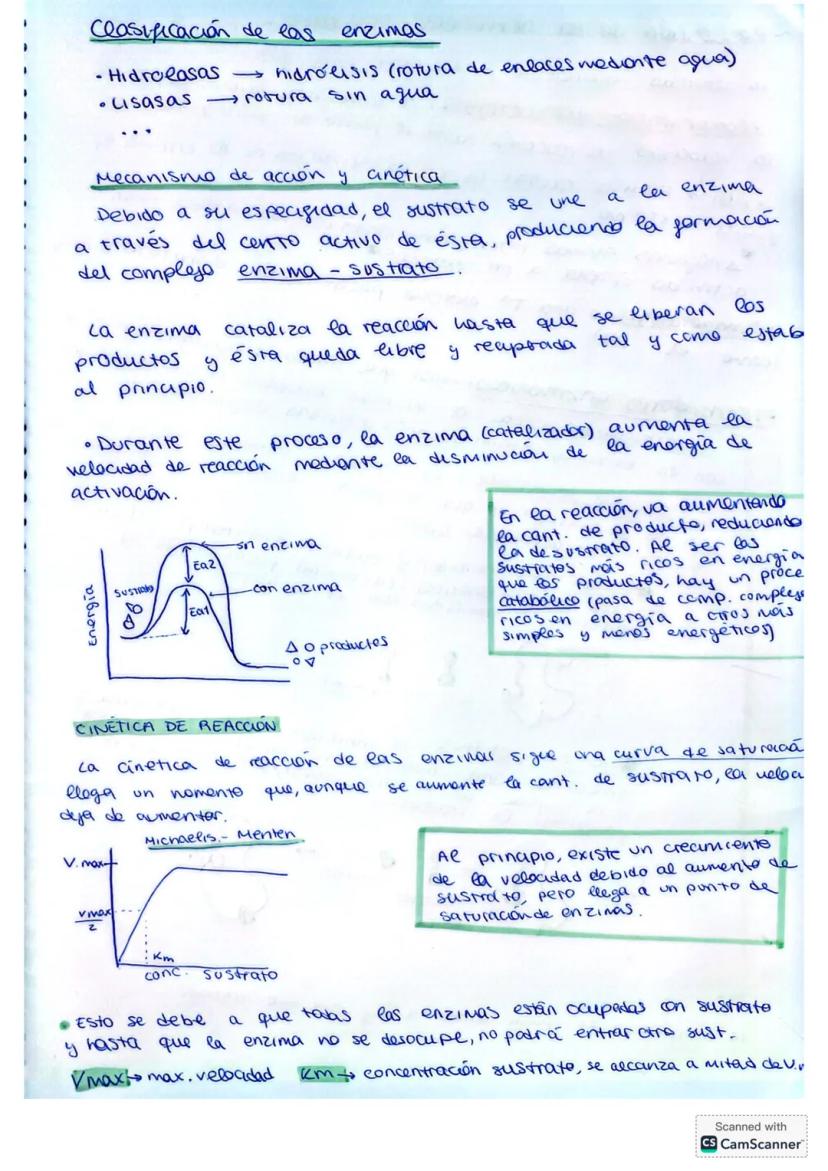 Clasificación de las enzimas
• Hidrolasas → hidrólisis (rotura de enlaces mediante agua)
• Lisasas → rotura sin agua
...
Mecanismo de acción y cinética
Debido a su especifidad, el sustrato se une a la enzima
a través del centro activo de ésta, produciendo la formación
del complejo enzima - sustrato.
La enzima cataliza la reacción hasta que se liberan los
productos y ésta queda libre y recuperada tal y como estab
al principio.
• Durante este proceso, la enzima (catalizador) aumenta la
velocidad de reacción mediante la disminución de la energía de
activación.
En la reacción, va aumentando
la cant. de producto, reduciendo
la de sustrato. Al ser los
sustratos más ricos en energía
que los productos, hay un proce
catabólico (pasa de comp. complejo
ricos en energía a otros más
simples y menos energéticos)
Energía
sustrato
sin enzima
Ea2
con enzima
Ea1
productos
CINÉTICA DE REACCIÓN
La cinética de reacción de las enzimas sigue una curva de saturació
llega un momento que, aunque se aumente la cant. de sustrato, la veloc
deja de aumentar.
Michaelis - Menten
V. max
Vmax/2
Km
conc. sustrato
Al principio, existe un crecimiento
de la velocidad debido al aumento de
sustrato, pero llega a un punto de
saturación de enzimas.
• Esto se debe a que todas las enzimas están ocupadas con sustrato
y hasta que la enzima no se desocupe, no podrá entrar otro sust.
Vmax → max. velocidad Km → concentración sustrato, se alcanza a mitad de V.
Scanned with
CS CamScanner